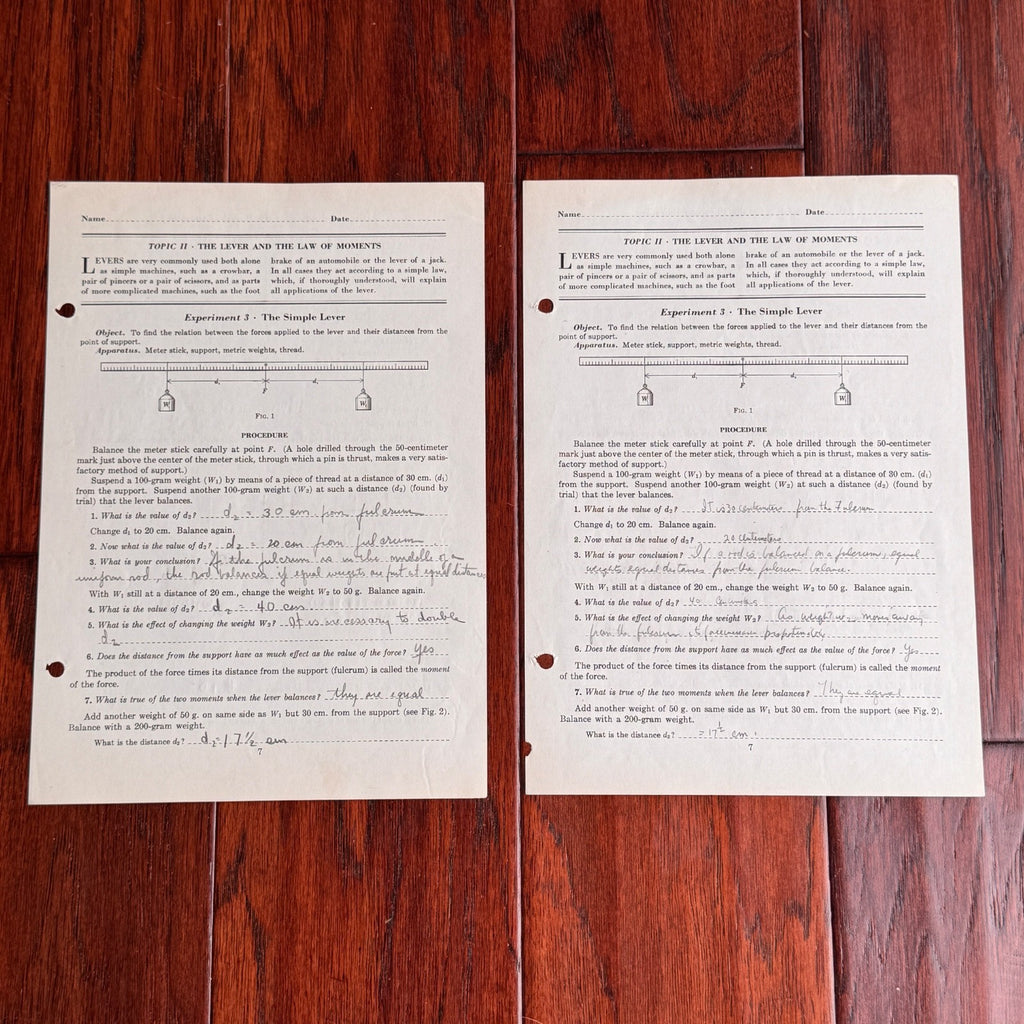 Name Date
TOPIC II · THE LEVER AND THE LAW OF MOMENTS
LEVERS are very commonly used both alone
as simple machines, such as a crowbar, a
pair of pincers or a pair of scissors, and as parts
of more complicated machines, such as the foot
brake of an automobile or the lever of a jack.
In all cases they act according to a simple law,
which, if thoroughly understood, will explain
all applications of the lever.
Experiment 3 · The Simple Lever
Object. To find the relation between the forces applied to the lever and their distances from the
point of support.
Apparatus. Meter stick, support, metric weights, thread.
d₂ F d₁
W₂ W₁
FIG. 1
PROCEDURE
Balance the meter stick carefully at point F. (A hole drilled through the 50-centimeter
mark just above the center of the meter stick, through which a pin is thrust, makes a very satis-
factory method of support.)
Suspend a 100-gram weight (W₁) by means of a piece of thread at a distance of 30 cm. (d₁)
from the support. Suspend another 100-gram weight (W₂) at such a distance (d₂) (found by
trial) that the lever balances.
1. What is the value of d₂? d₂ = 30 cm from fulcrum
Change d₁ to 20 cm. Balance again.
2. Now what is the value of d₂? d₂ = 20 cm from fulcrum
3. What is your conclusion? If the fulcrum is in the middle of a
uniform rod, the rod balances if equal weights are put at equal distances
With W₁ still at a distance of 20 cm., change the weight W₂ to 50 g. Balance again.
4. What is the value of d₂? d₂ = 40 cm
5. What is the effect of changing the weight W₂? It is necessary to double
d₂
6. Does the distance from the support have as much effect as the value of the force? Yes
The product of the force times its distance from the support (fulcrum) is called the moment
of the force.
7. What is true of the two moments when the lever balances? They are equal
Add another weight of 50 g. on same side as W₁ but 30 cm. from the support (see Fig. 2).
Balance with a 200-gram weight.
What is the distance d₂? d₂ = 17 ½ cm
7
Name Date
TOPIC II · THE LEVER AND THE LAW OF MOMENTS
LEVERS are very commonly used both alone
as simple machines, such as a crowbar, a
pair of pincers or a pair of scissors, and as parts
of more complicated machines, such as the foot
brake of an automobile or the lever of a jack.
In all cases they act according to a simple law,
which, if thoroughly understood, will explain
all applications of the lever.
Experiment 3 · The Simple Lever
Object. To find the relation between the forces applied to the lever and their distances from the
point of support.
Apparatus. Meter stick, support, metric weights, thread.
d₂ F d₁
W₂ W₁
FIG. 1
PROCEDURE
Balance the meter stick carefully at point F. (A hole drilled through the 50-centimeter
mark just above the center of the meter stick, through which a pin is thrust, makes a very satis-
factory method of support.)
Suspend a 100-gram weight (W₁) by means of a piece of thread at a distance of 30 cm. (d₁)
from the support. Suspend another 100-gram weight (W₂) at such a distance (d₂) (found by
trial) that the lever balances.
1. What is the value of d₂? It is 30 centimeters from the Fulcrum
Change d₁ to 20 cm. Balance again.
2. Now what is the value of d₂? 20 Centimeters
3. What is your conclusion? If a rod is balanced on a fulcrum, equal
weights equal distances from the fulcrum balance.
With W₁ still at a distance of 20 cm., change the weight W₂ to 50 g. Balance again.
4. What is the value of d₂? 40
5. What is the effect of changing the weight W₂? As weight move away
from the fulcrum
6. Does the distance from the support have as much effect as the value of the force? Yes
The product of the force times its distance from the support (fulcrum) is called the moment
of the force.
7. What is true of the two moments when the lever balances? They are equal
Add another weight of 50 g. on same side as W₁ but 30 cm. from the support (see Fig. 2).
Balance with a 200-gram weight.
What is the distance d₂? = 17 ½ cm.
7